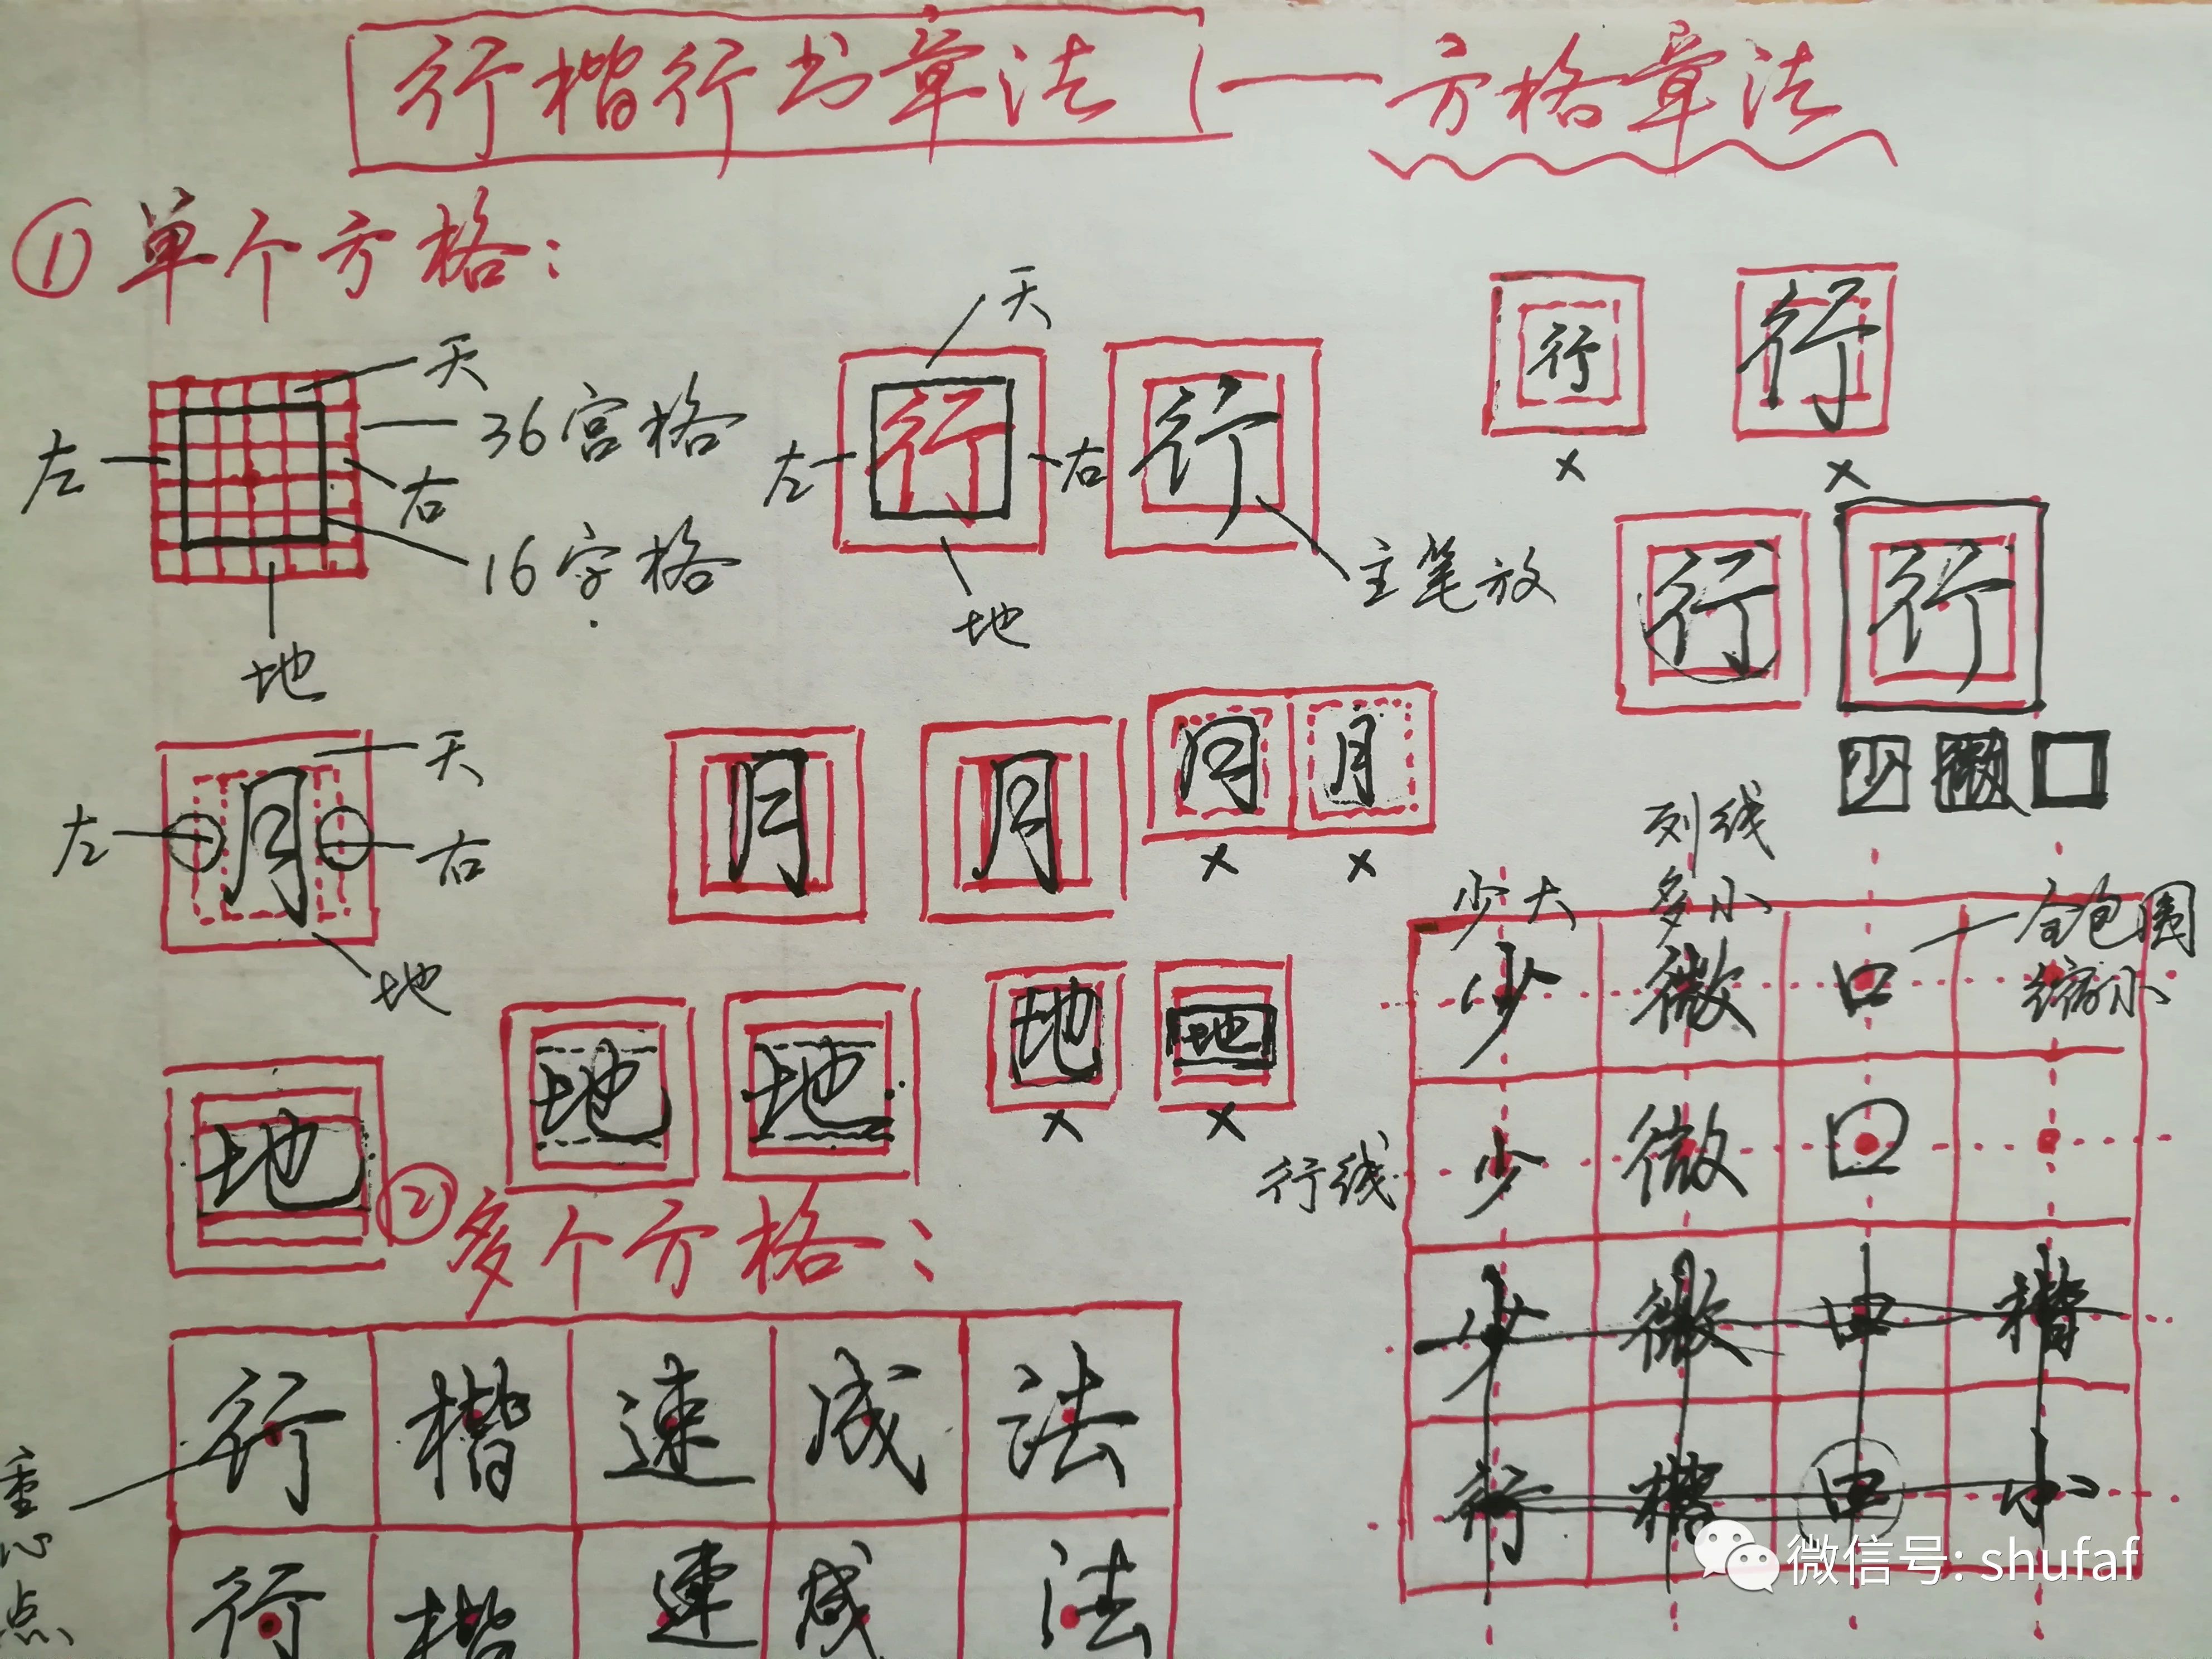 行楷行书章法——方格章法
①单个方格：
天
左
36宫格
右
16字格
地
天
左
行
右
地
行
主笔放
行
×
行
×
行
行
天
左
月
右
地
月
月
月
×
月
×
少
微
口
地
地
地
地
×
地
×
②多个方格：
行楷速成法
行楷速成法
重心点
列线
少大
多小
全包围
缩小
行线
少微口
少微口
少微中楷
行楷口小
微信号: shufaf